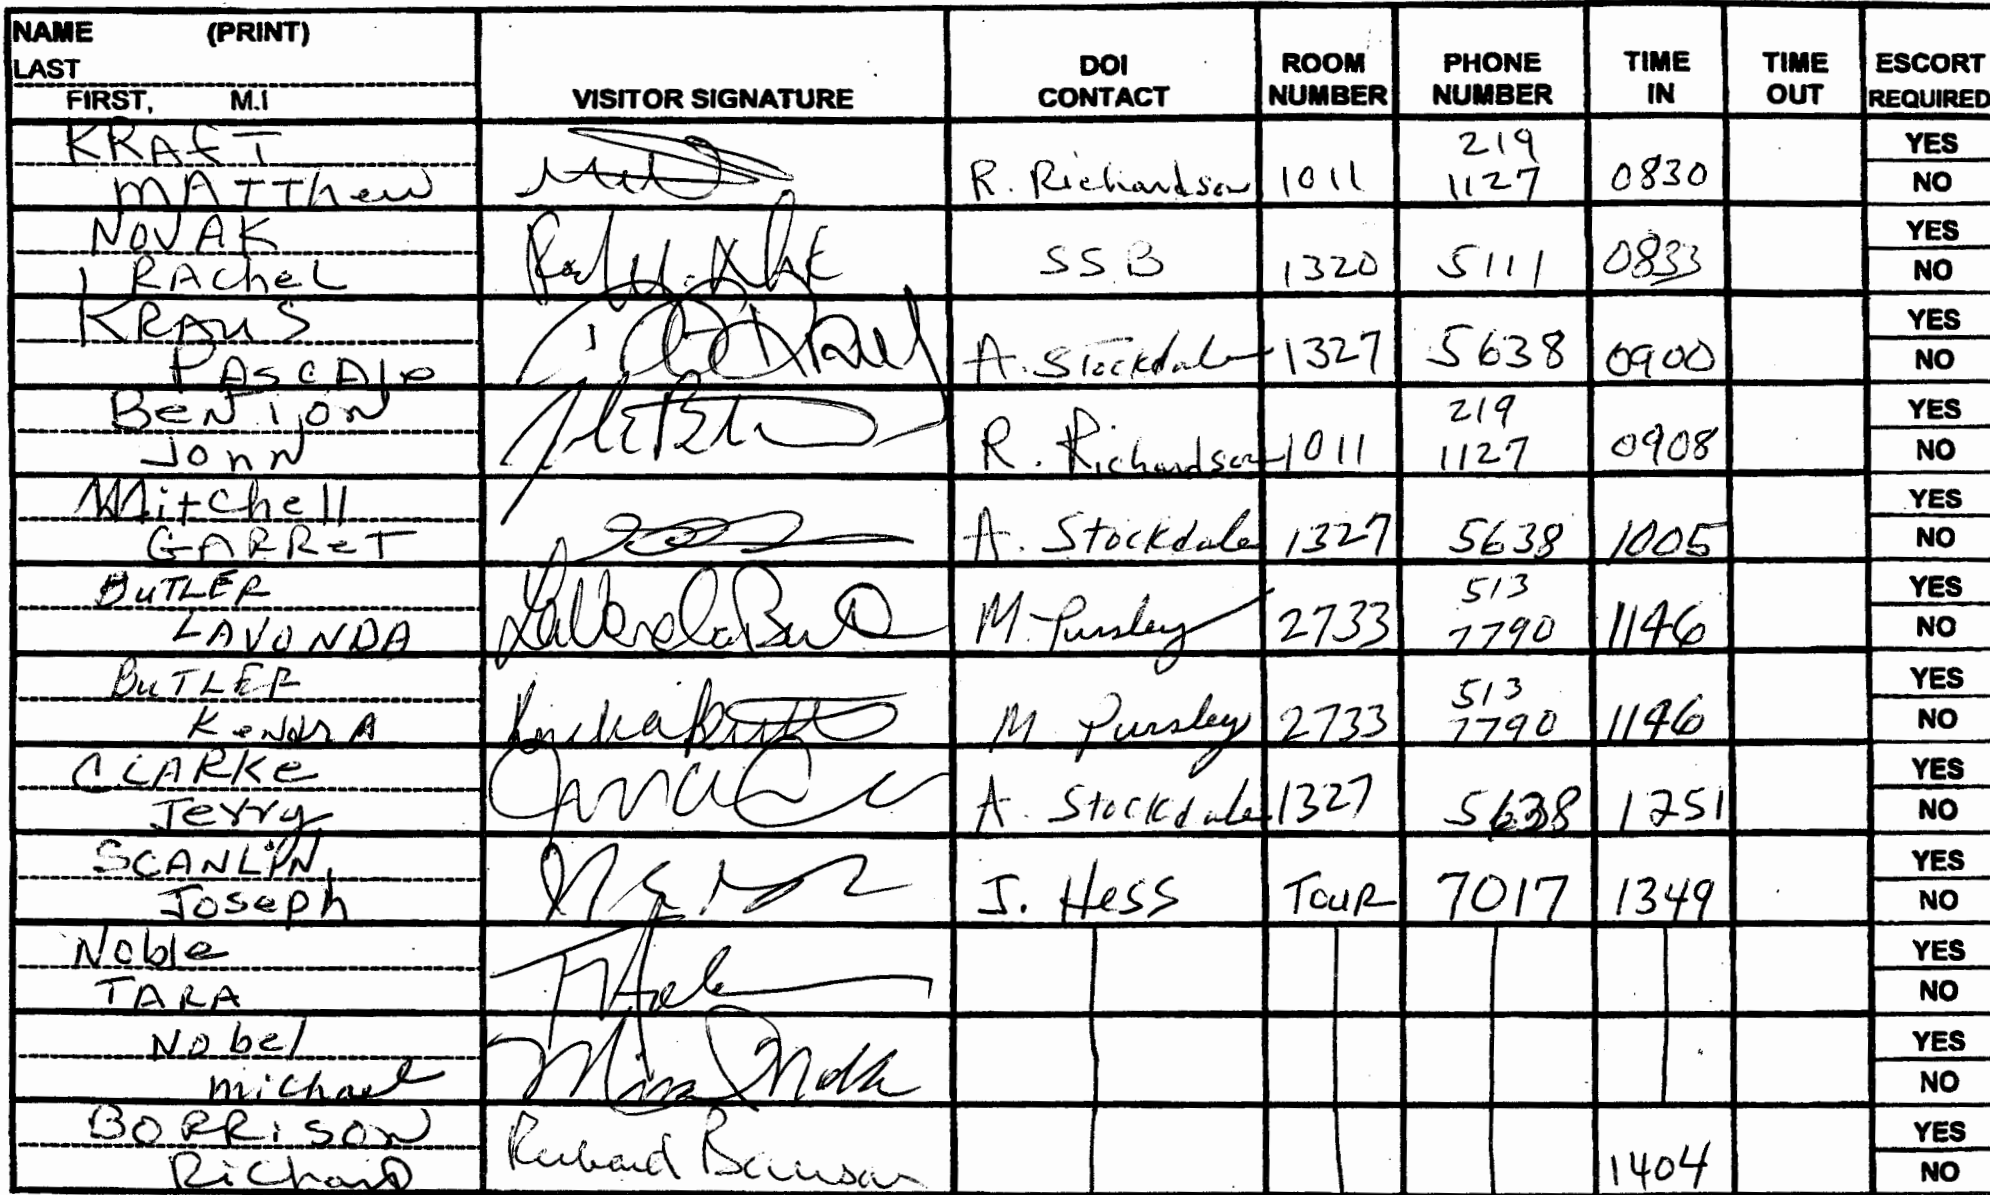 NAME (PRINT)
LAST
FIRST, M.I
VISITOR SIGNATURE
DOI CONTACT
ROOM NUMBER
PHONE NUMBER
TIME IN
TIME OUT
ESCORT REQUIRED
KRAFT
MATThew
R. Richardson 1011 219 1127 0830 YES NO
NOVAK
RAcheL
SSB 1320 5111 0833 YES NO
KRAuS
PAScAle
A. Stockdale 1327 5638 0900 YES NO
BeNTON
JohN
R. Richardson 1011 219 1127 0908 YES NO
Mitchell
GARReT
A. Stockdale 1327 5638 1005 YES NO
BuTLER
LAVONDA
M. Pursley 2733 513 7790 1146 YES NO
BuTLER
KeNDRA
M Pursley 2733 513 7790 1146 YES NO
CLARKe
Jerry
A. Stockdale 1327 5638 1251 YES NO
SCANLiN,
Joseph
J. Hess TouR 7017 1349 YES NO
Noble
TARA
YES NO
Nobel
michael
YES NO
BORRiSON
RichaRD
Richard
1404 YES NO